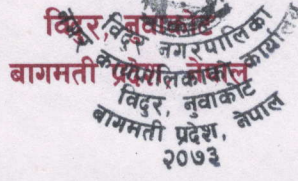 विदुर, नुवाकोट
बागमती प्रदेश, नेपाल
विदुर नगरपालिका
नगर कार्यपालिकाको कार्यालय
विदुर, नुवाकोट
बागमती प्रदेश, नेपाल
२०७३